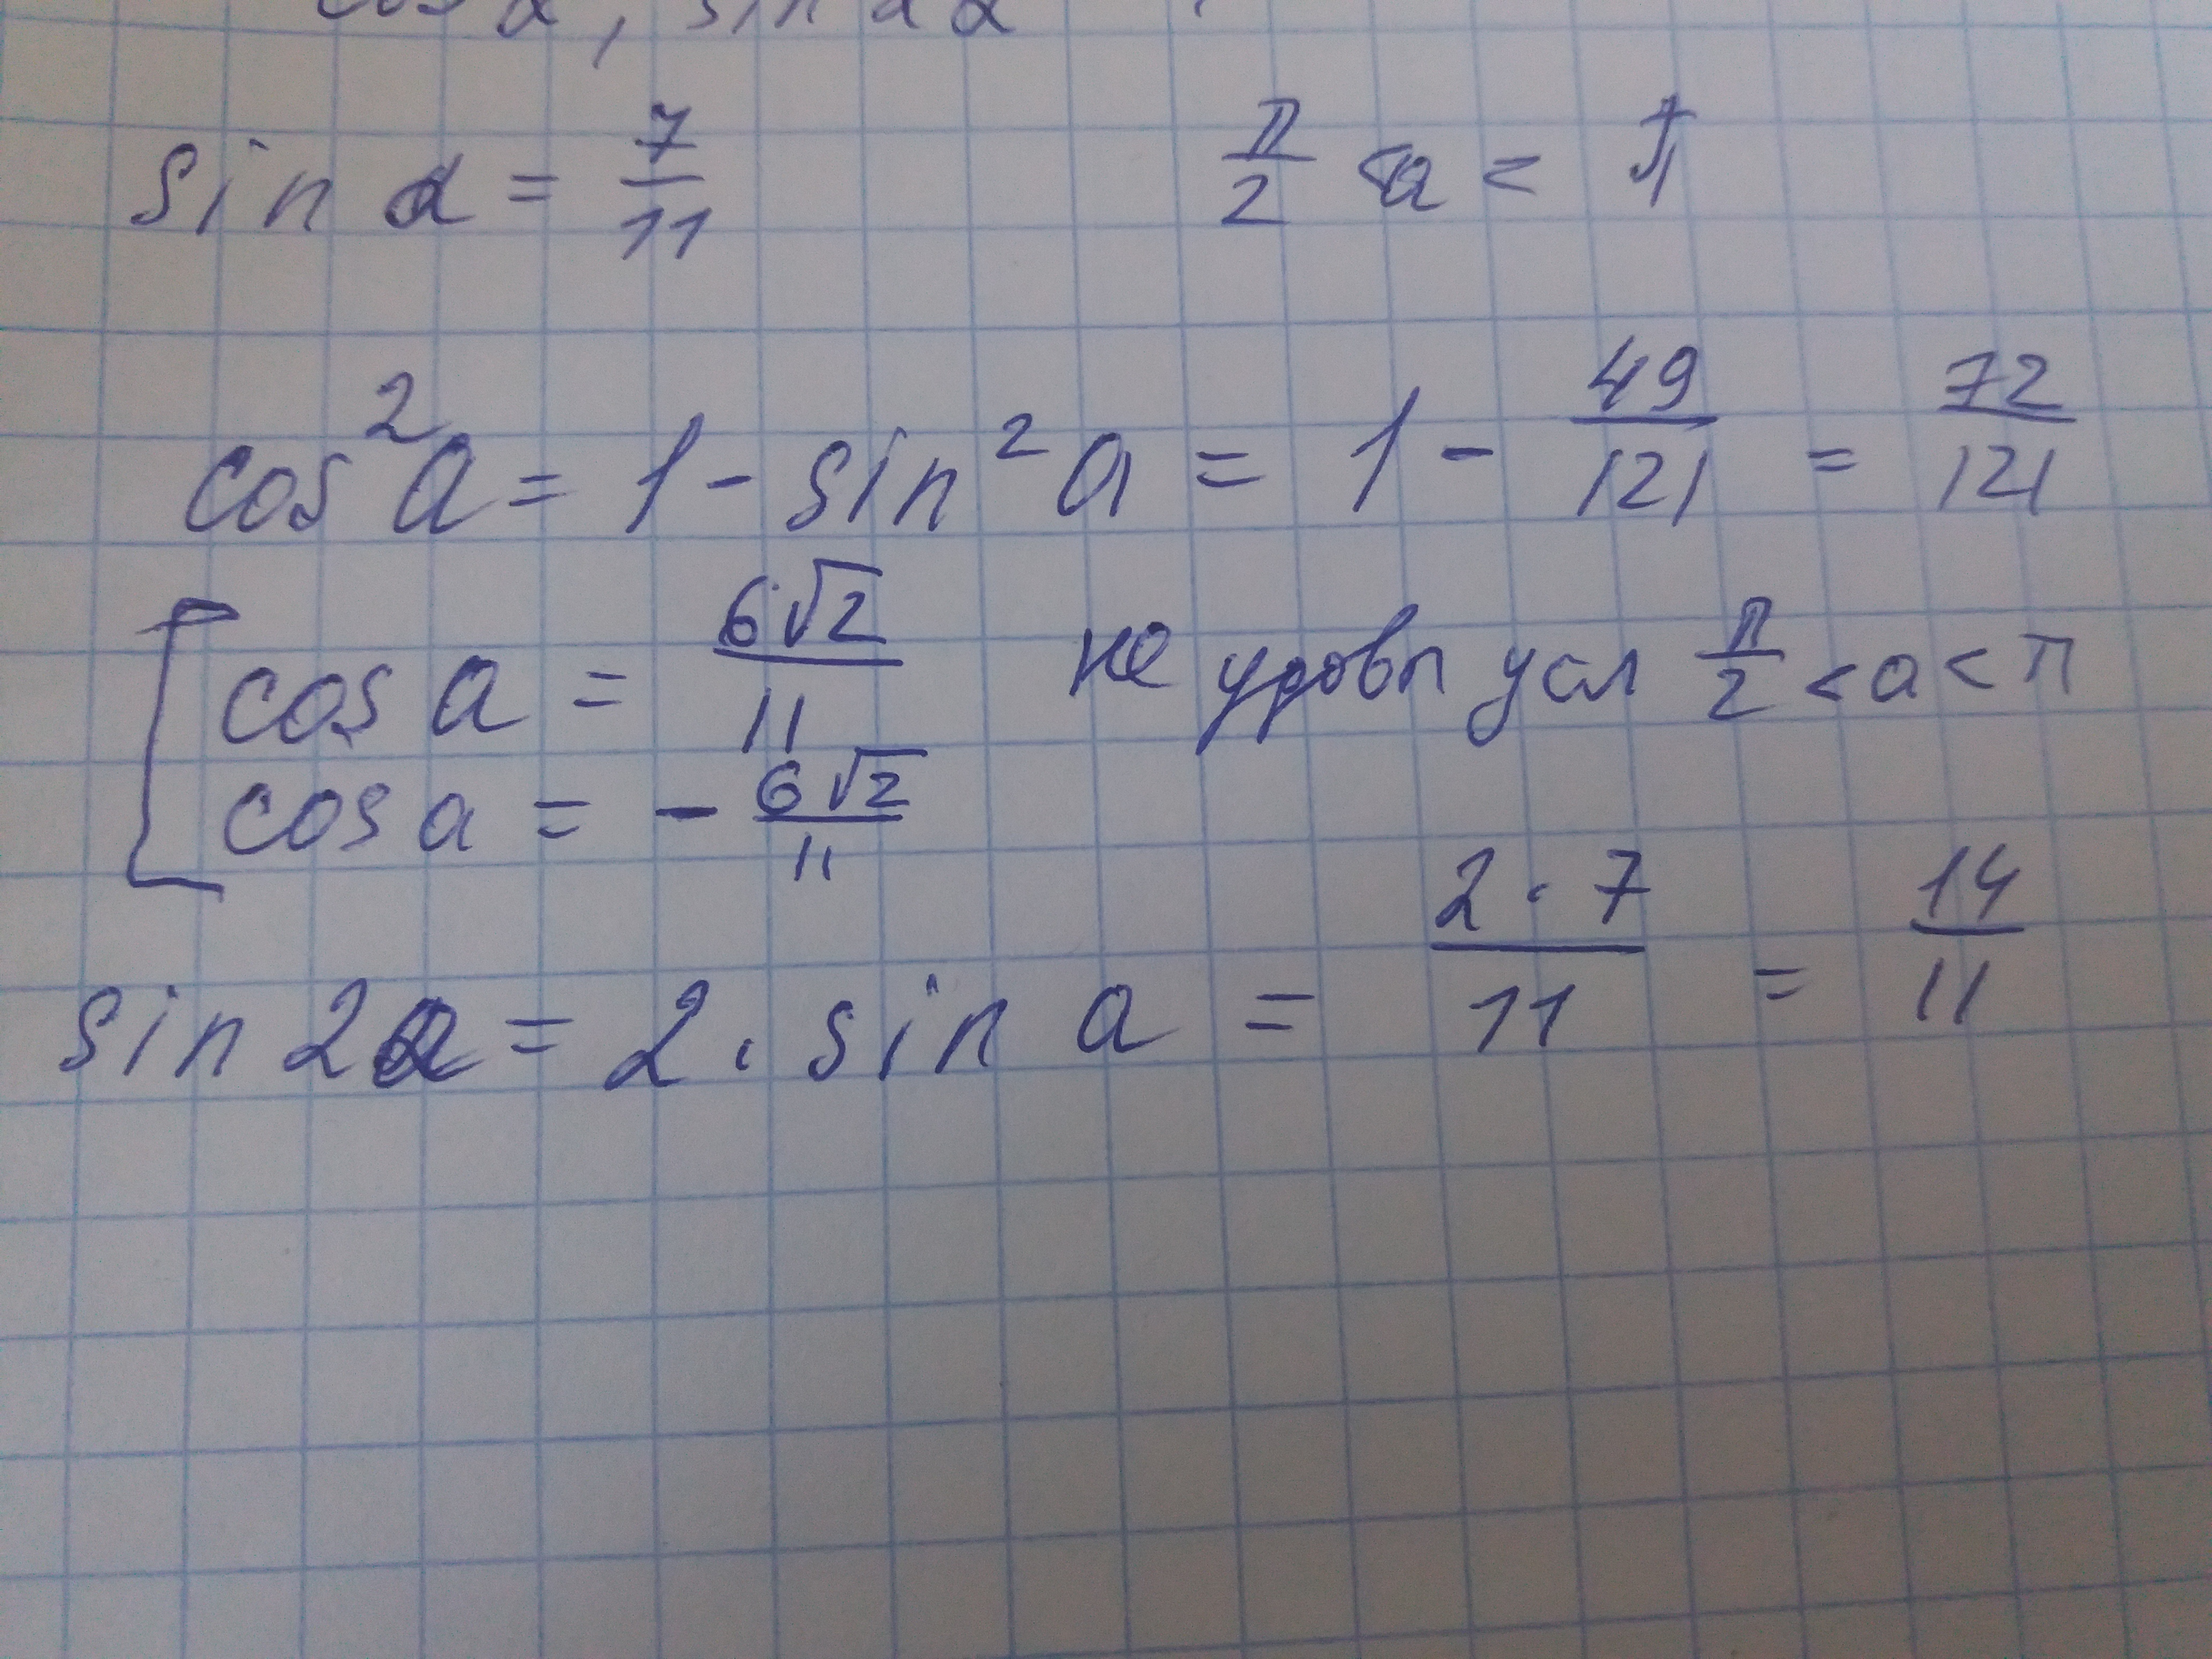 cos α, sin 2α
sin α = 7/11    π/2 < a < π
cos²a = 1 - sin²a = 1 - 49/121 = 72/121
[ cos a = 6√2/11  не удовл усл π/2 < a < π
cos a = - 6√2/11
sin 2a = 2 · sin a = 2·7/11 = 14/11